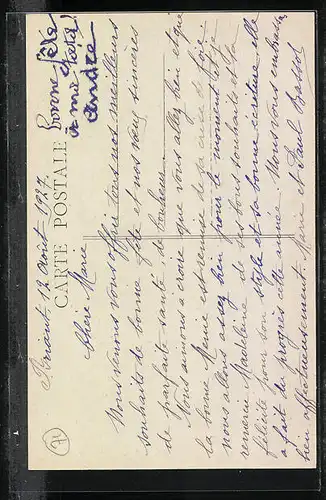 Bonne fête
à mi
André
12 Août 1927.
CARTE POSTALE
Chère Marie
Nous venons vous offrir tous nos meilleurs
souhaits de bonne fête et nos vœux sincères
de parfaite santé, de bonheur.
Nous aimons à croire que vous allez bien et que
la bonne Mémé est remise de sa crise de foie.
nous allons assez bien pour le moment et je
remercie Madeleine de ses bons souhaits et la
félicite pour son style et sa bonne écriture elle
a fait du progrès cette année. Nous vous embrassons
bien affectueusement. Marie et Paul